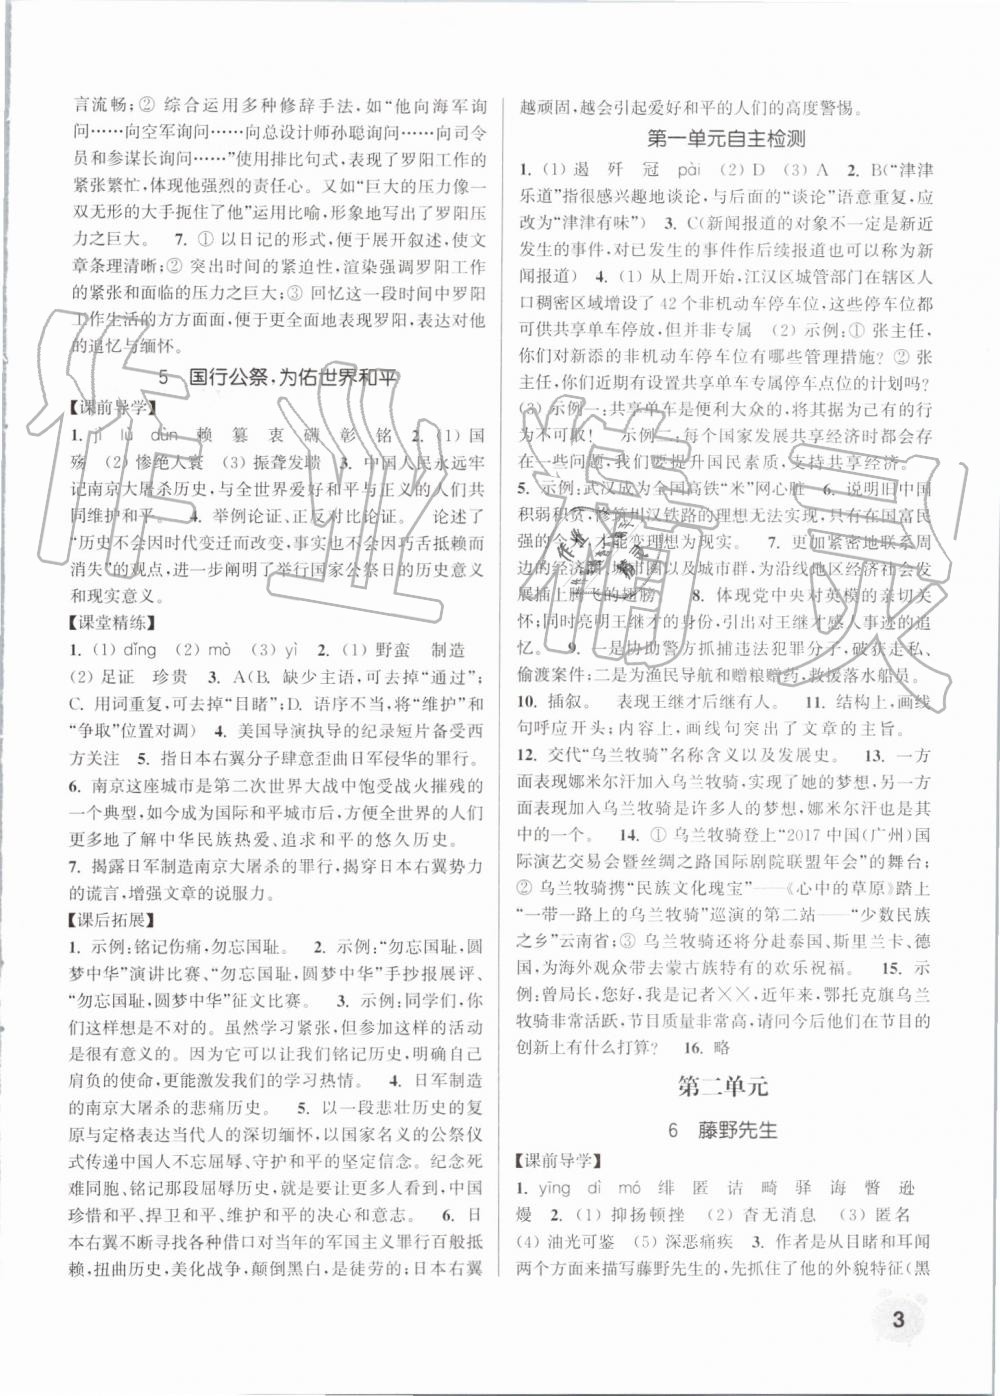 言流畅;② 综合运用多种修辞手法,如“他向海军询
问……向空军询问……向总设计师孙聪询问……向司令
员和参谋长询问……”使用排比句式,表现了罗阳工作的
紧张繁忙,体现他强烈的责任心。又如“巨大的压力像一
双无形的大手扼住了他”运用比喻,形象地写出了罗阳压
力之巨大。 7. ① 以日记的形式,便于展开叙述,使文
章条理清晰;② 突出时间的紧迫性,渲染强调罗阳工作
的紧张和面临的压力之巨大;③ 回忆这一段时间中罗阳
工作生活的方方面面,便于更全面地表现罗阳,表达对他
的追忆与缅怀。
5 国行公祭,为佑世界和平
【课前导学】
1. jì lù dùn 赖 篡 衷 礴 彰 铭 2. (1) 国
殇 (2) 惨绝人寰 (3) 振聋发聩 3. 中国人民永远牢
记南京大屠杀历史,与全世界爱好和平与正义的人们共
同维护和平。 4. 举例论证、正反对比论证。 论述了
“历史不会因时代变迁而改变,事实也不会因巧舌抵赖而
消失”的观点,进一步阐明了举行国家公祭日的历史意义
和现实意义。
【课堂精练】
1. (1) dǐng (2) mò (3) yì 2. (1) 野蛮 制造
(2) 足证 珍贵 3. A(B. 缺少主语,可去掉“通过”;
C. 用词重复,可去掉“目睹”;D. 语序不当,将“维护”和
“争取”位置对调) 4. 美国导演执导的纪录短片备受西
方关注 5. 指日本右翼分子肆意歪曲日军侵华的罪行。
6. 南京这座城市是第二次世界大战中饱受战火摧残的
一个典型,如今成为国际和平城市后,方便全世界的人们
更多地了解中华民族热爱、追求和平的悠久历史。
7. 揭露日军制造南京大屠杀的罪行,揭穿日本右翼势力
的谎言,增强文章的说服力。
【课后拓展】
1. 示例:铭记伤痛,勿忘国耻。 2. 示例:“勿忘国耻,圆
梦中华”演讲比赛、“勿忘国耻,圆梦中华”手抄报展评、
“勿忘国耻,圆梦中华”征文比赛。 3. 示例:同学们,你
们这样想是不对的。虽然学习紧张,但参加这样的活动
是很有意义的。因为它可以让我们铭记历史,明确自己
肩负的使命,更能激发我们的学习热情。 4. 日军制造
的南京大屠杀的悲痛历史。 5. 以一段悲壮历史的复
原与定格表达当代人的深切缅怀,以国家名义的公祭仪
式传递中国人不忘屈辱、守护和平的坚定信念。纪念死
难同胞、铭记这段屈辱历史,其意义更让人看到,中国
珍惜和平、捍卫和平、维护和平的决心和意志。 6. 日
本右翼不断寻找各种借口对当年的军国主义罪行百般抵
赖,扭曲历史,美化战争,颠倒黑白,是徒劳的;日本右翼
越顽固,越会引起爱好和平的人们的高度警惕。
第一单元自主检测
1. (1) 遏 歼 冠 pài (2) D (3) A 2. B(“津津
乐道”指很感兴趣地谈论,与后面的“谈论”语意重复,应
改为“津津有味”) 3. C(新闻报道的对象不一定是新近
发生的事件,对已发生的事件作后续报道也可以称为新
闻报道) 4. (1) 从上周开始,江汉区城管部门在辖区人
口稠密区域增设了 42 个非机动车停车位,这些停车位都
可供共享单车停放,但并非专属 (2) 示例:① 张主任,
你们对新添的非机动车停车位有哪些管理措施? ② 张主
任,你们近期有设置共享单车专属停车点位的计划吗?
(3) 示例一:共享单车是便利大众的,将其占为己有的行
为不可取! 示例二:每个国家发展共享经济时都会存
在一些问题,我们要提升国民素质,支持共享经济。
5. 示例:武汉成为全国高铁“米”网心脏 6. 说明旧中国
积弱积贫,修筑川汉铁路的理想无法实现,只有在国富民
强的今天,才能变理想为现实。 7. 更加紧密地联系周
边的经济区、城市圈以及城市群,为沿线地区经济社会发
展插上腾飞的翅膀 8. 体现党中央对英模的亲切关
怀;同时亮明王继才的身份,引出对王继才感人事迹的追
忆。 9. 一是协助警方抓捕违法犯罪分子,破获走私、
偷渡案件;二是为渔民导航和赠粮赠药,救援落水船员。
10. 插叙。 表现王继才后继有人。 11. 结构上,画线
句呼应开头;内容上,画线句突出了文章的主旨。
12. 交代“乌兰牧骑”名称含义以及发展史。 13. 一方
面表现娜米尔汗加入乌兰牧骑,实现了她的梦想,另一方
面表现加入乌兰牧骑是许多人的梦想,娜米尔汗也是其
中的一个。 14. ① 乌兰牧骑登上“2017 中国(广州)国
际演艺交易会暨丝绸之路国际剧院联盟年会”的舞台;
② 乌兰牧骑携“民族文化瑰宝”——《心中的草原》踏上
“一带一路上的乌兰牧骑”巡演的第二站——“少数民族
之乡”云南省;③ 乌兰牧骑还将分赴泰国、斯里兰卡、德
国,为海外观众带去蒙古族特有的欢乐祝福。 15. 示
例:曾局长,您好,我是记者××,近年来,鄂托克旗乌兰
牧骑非常活跃,节目质量非常高,请问今后他们在节目的
创新上有什么打算? 16. 略
第二单元
6 藤野先生
【课前导学】
1. yīng dì mó 绯 匿 诘 畸 驿 诲 瞥 逊
熳 2. (1) 抑扬顿挫 (2) 杳无消息 (3) 匿名
(4) 油光可鉴 (5) 深恶痛疾 3. 作者是从目睹和耳闻
两个方面来描写藤野先生的,先抓住了他的外貌特征(黑
3
作业精灵